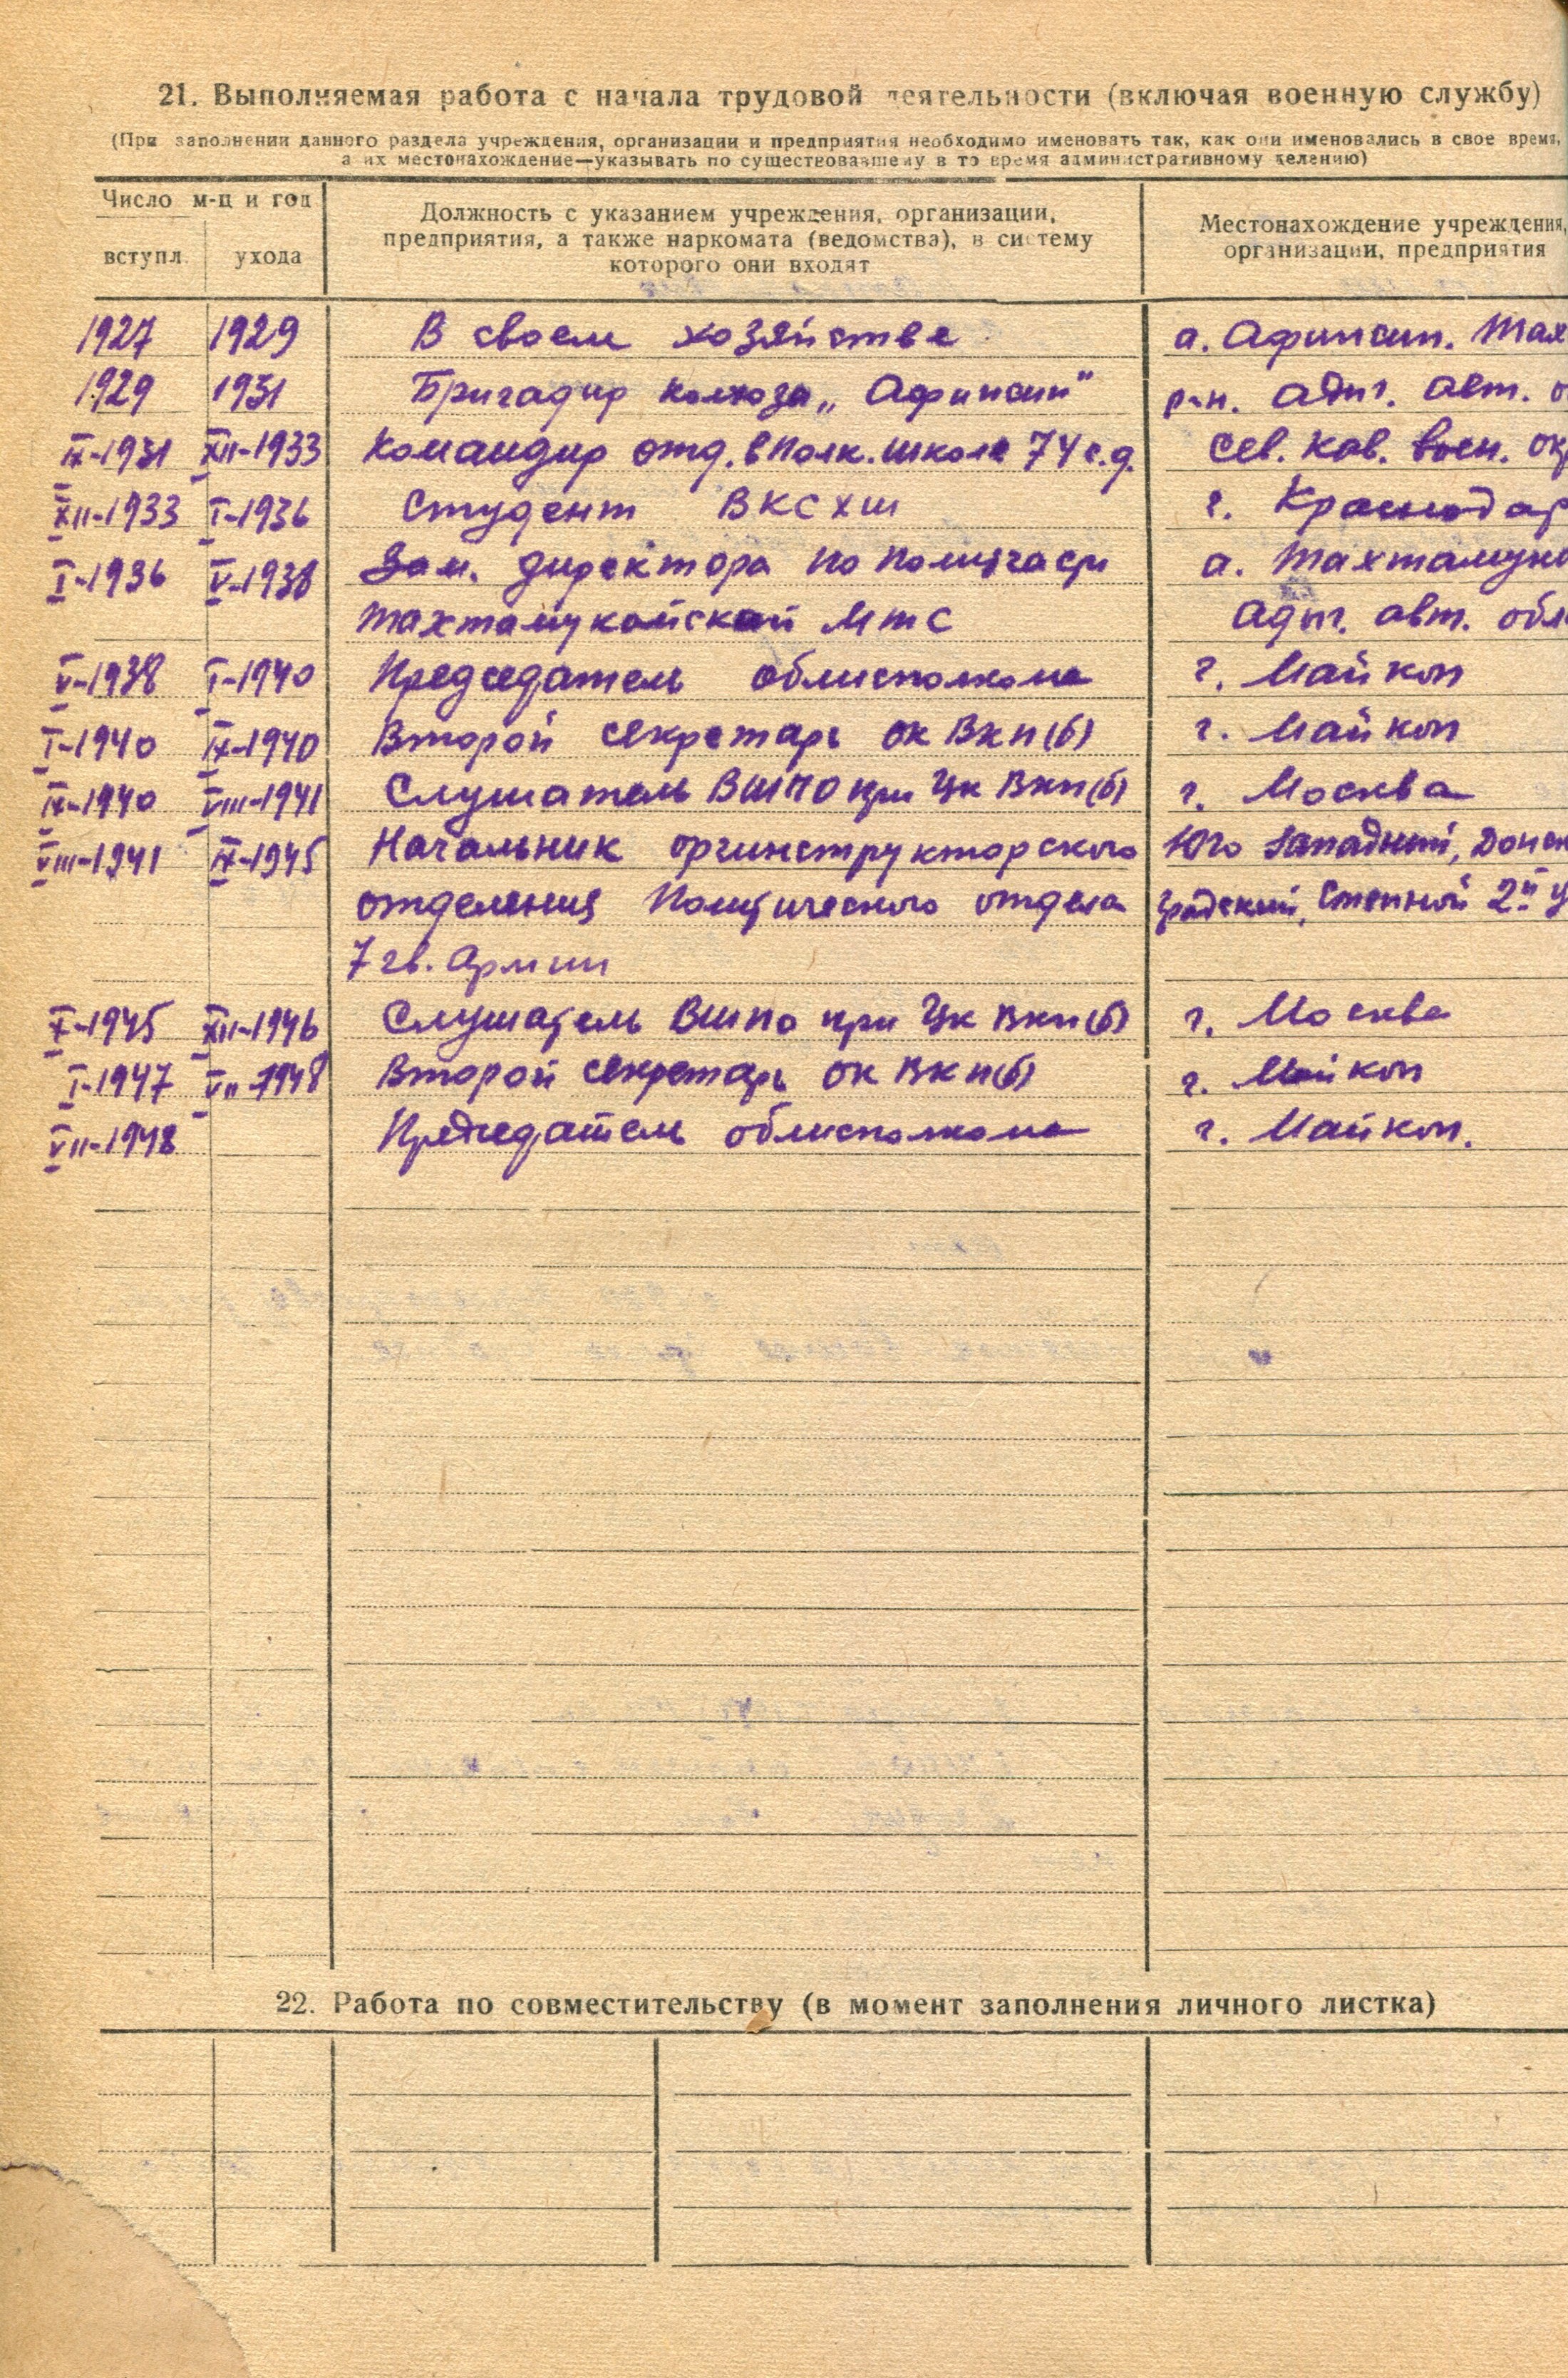 21. Выполняемая работа с начала трудовой деятельности (включая военную службу)
(При заполнении данного раздела учреждения, организации и предприятия необходимо именовать так, как они именовались в свое время,
а их местонахождение—указывать по существовавшему в то время административному делению)
Число м-ц и год
вступл. ухода
Должность с указанием учреждения, организации,
предприятия, а также наркомата (ведомства), в систему
которого они входят
Местонахождение учреждения,
организации, предприятия
1927 1929 В своем хозяйстве а. Афипсип. Тах
1929 1931 Бригадир колхоза „Афипсип" р-н. Адыг. авт. о
IX-1931 XII-1933 Командир отд. в полк. школе 74 с.д. Сев. Кав. воен. окр
XII-1933 I-1936 Студент ВКСХШ г. Краснодар
I-1936 V-1938 Зам. директора по политчасти а. Тахтамука
Тахтамукайской МТС Адыг. авт. обл
V-1938 I-1940 Председатель облисполкома г. Майкоп
I-1940 IX-1940 Второй секретарь ОК ВКП(б) г. Майкоп
IX-1940 VIII-1941 Слушатель ВШПО при ЦК ВКП(б) г. Москва
VIII-1941 IX-1945 Начальник оргинструкторского Юго Западный, Донск
отделения Политического отдела градский, Степной 2й У
7 гв. Армии
X-1945 XII-1946 Слушатель ВШПО при ЦК ВКП(б) г. Москва
I-1947 VII-1948 Второй секретарь ОК ВКП(б) г. Майкоп
VII-1948 Председатель облисполкома г. Майкоп.
22. Работа по совместительству (в момент заполнения личного листка)